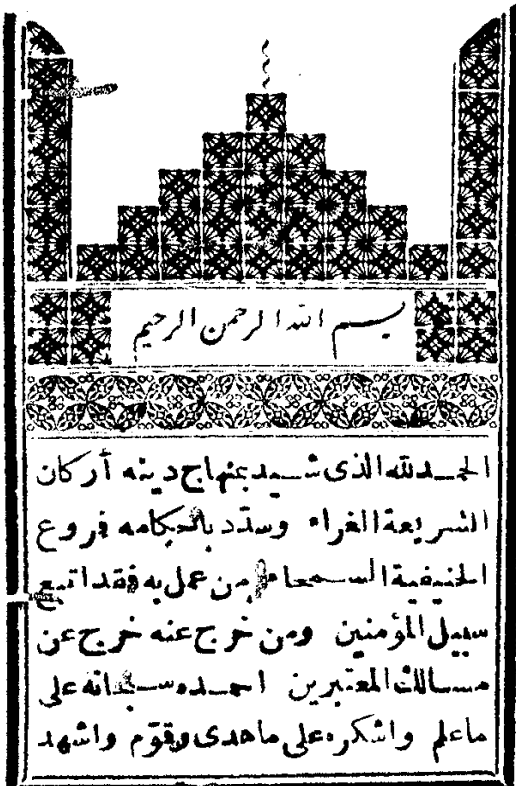 بسم الله الرحمن الرحيم
الحمد لله الذى شيد بمنهاج دينه أركان
الشريعة الغراء وسدد بأحكامه فروع
الحنيفية السمحاء من عمل به فقد اتبع
سبيل المؤمنين ومن خرج عنه خرج عن
مسالك المعتبرين احمده سبحانه على
ماعلم واشكره على ماهدى وقوّم واشهد